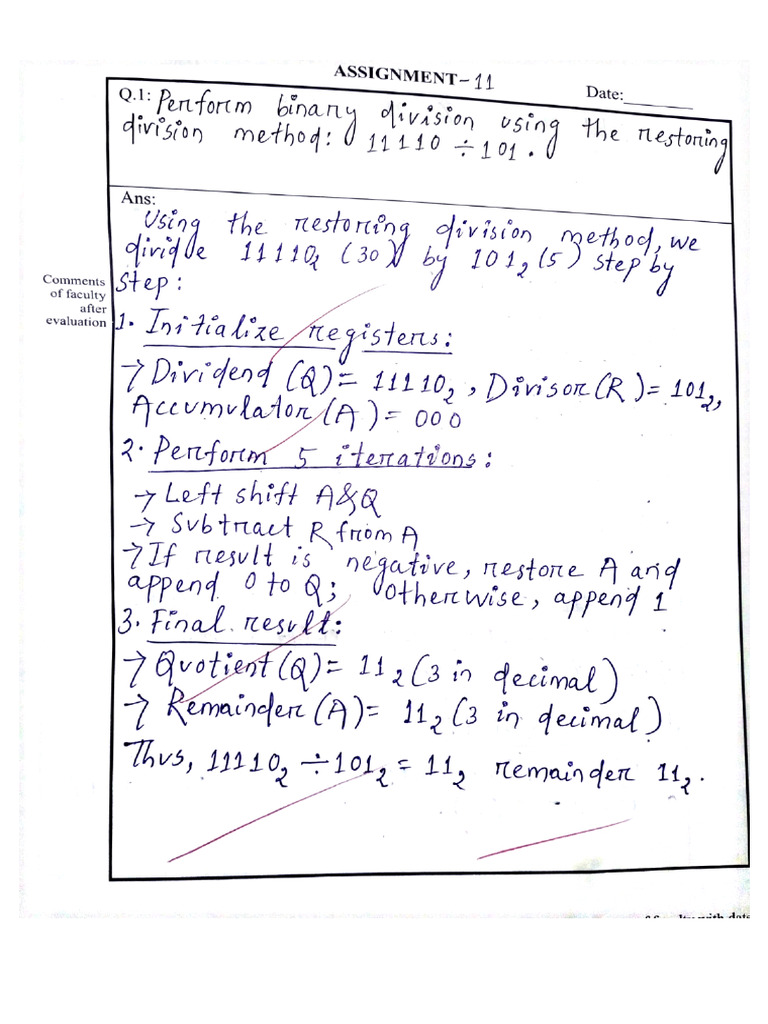 ASSIGNMENT-11
Date:_______
Q.1: Perform binary division using the restoring
division method: 11110 ÷ 101.
Ans:
Using the restoring division method, we
divide 11110₂ (30) by 101₂ (5) step by
step:
Comments
of faculty
after
evaluation
1. Initialize registers:
→ Dividend (Q) = 11110₂, Divisor (R) = 101₂,
Accumulator (A) = 000
2. Perform 5 iterations:
→ Left shift A&Q
→ Subtract R from A
→ If result is negative, restore A and
append 0 to Q; otherwise, append 1
3. Final result:
→ Quotient (Q) = 11₂ (3 in decimal)
→ Remainder (A) = 11₂ (3 in decimal)
Thus, 11110₂ ÷ 101₂ = 11₂ remainder 11₂.